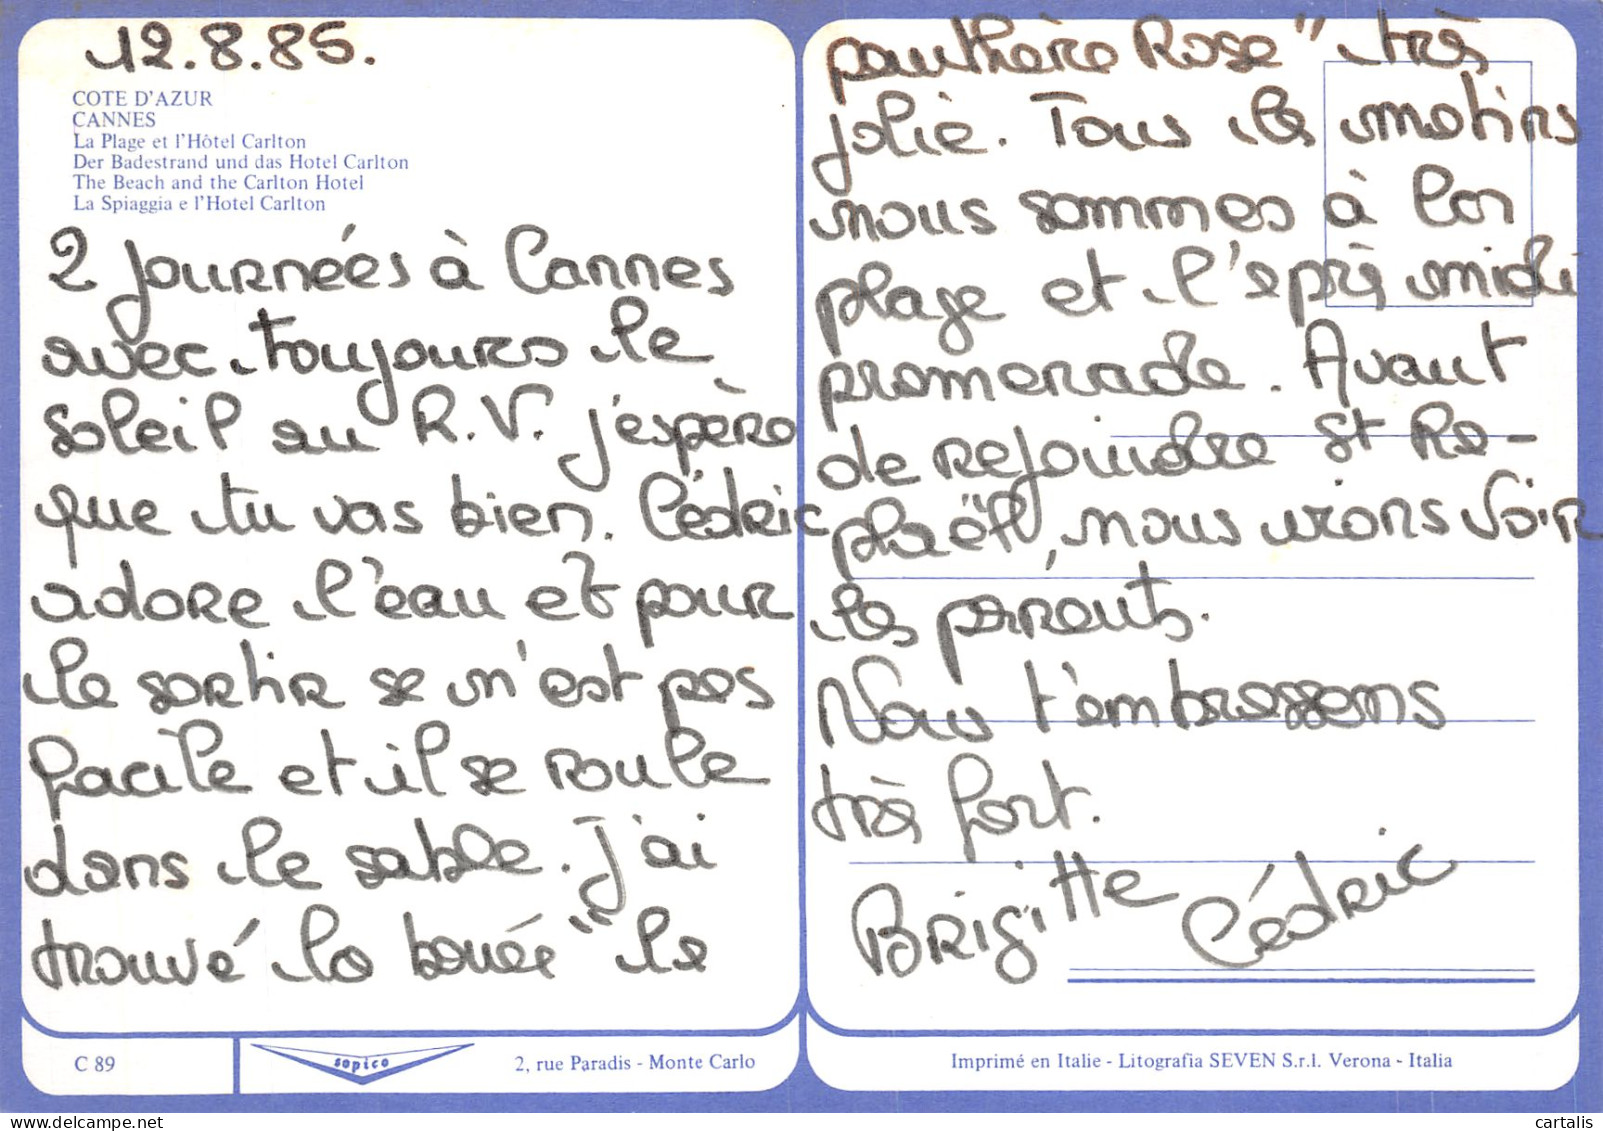 12.8.85.
COTE D'AZUR
CANNES
La Plage et l'Hôtel Carlton
Der Badestrand und das Hotel Carlton
The Beach and the Carlton Hotel
La Spiaggia e l'Hotel Carlton
2 journées à Cannes
avec toujours le
soleil au R.V. j'espère
que tu vas bien. Cédric
adore l'eau et pour
le sortir se n'est pas
facile et il se roule
dans le sable. J'ai
trouvé la bouée "le
C 89
sopico
2, rue Paradis - Monte Carlo
panthère Rose" très
jolie. Tous les matins
nous sommes à la
plage et l'après midi
promenade. Avant
de rejoindre St Ra-
phaël, nous irons voir
les parents.
Nous t'embrassons
très fort.
Brigitte Cédric
Imprimé en Italie - Litografia SEVEN S.r.l. Verona - Italia
cartalis